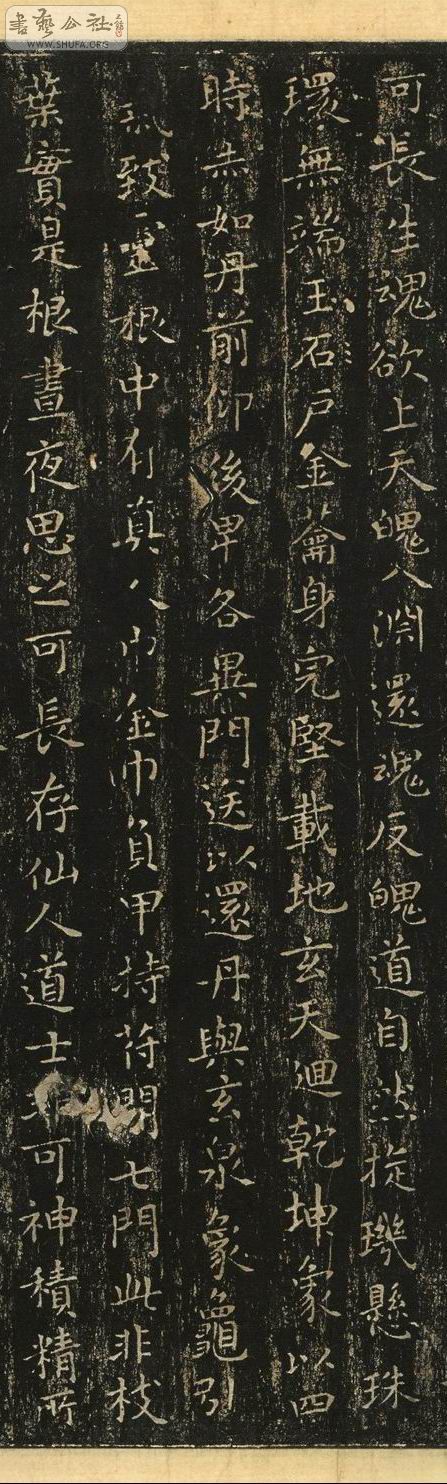 書藝公社
WWW.SHUFA.ORG
可長生魂欲上天魄入淵還魂反魄道自然旋璣懸珠
環無端玉石戶金蘥身完堅載地玄天迴乾坤象以四
時赤如丹前仰後卑各異門送以還丹與玄泉象龜引
氣致靈根中有真人巾金巾負甲持苻開七門此非枝
葉實是根晝夜思之可長存仙人道士非可神積精所